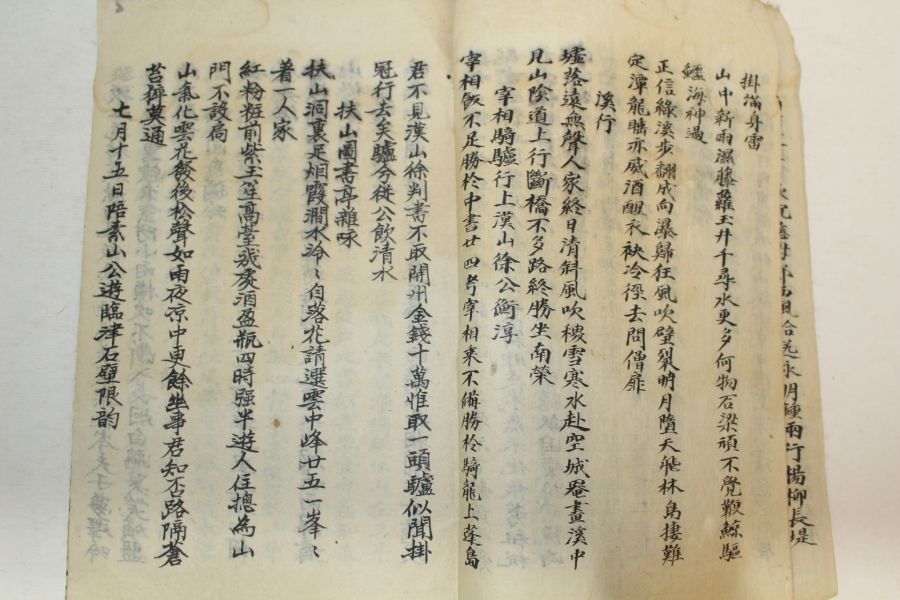 掛滿身雷
山中新雨濕藤蘿玉井千尋水更多何物石梁頑不覺鞭鯨驅
鱷海神過
正信緣溪步翻成向瀑歸狂風吹壁裂明月墮天飛林鳥捿難
定潭龍聽亦威酒醒衣袂冷徑去問僧扉
溪行
墟落遠無聲人家終日清斜風吹稷雪寒水赴空城罨畫溪中
見山陰道上行斷橋不多路終勝坐南榮
宰相騎驢行上漢山徐公衡淳
宰相飯不足勝於中書廿四考宰相乘不備勝於騎龍上蓬島
君不見漢山徐判書不取開州金錢十萬惟取一頭驢似聞掛
冠行去矣驢今從公飲清水
扶山圖書亭雜咏
扶山洞裏足烟霞澗水泠〻自落花請選雲中峰廿五一峯〻
著一人家
紅粉粧前紫玉笙高臺幾處酒盈瓶四時强半遊人住摠為山
門不設扃
山氣化雲花餕後松聲如雨夜凉中更餘幽事君知否路隔蒼
苔獐萬通
七月十五日陪素山公遊臨津石壁限韵